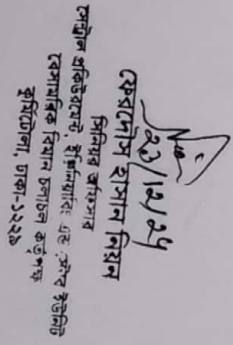 23/12/24
ফেরদৌস হাসান লিখন
সিনিয়র অফিসার
সেন্ট্রাল প্রকিউরমেন্ট, ইঞ্জিনিয়ারিং এন্ড স্টোর ইউনিট
বেসামরিক বিমান চলাচল কর্তৃপক্ষ
কুর্মিটোলা, ঢাকা-১২২৯